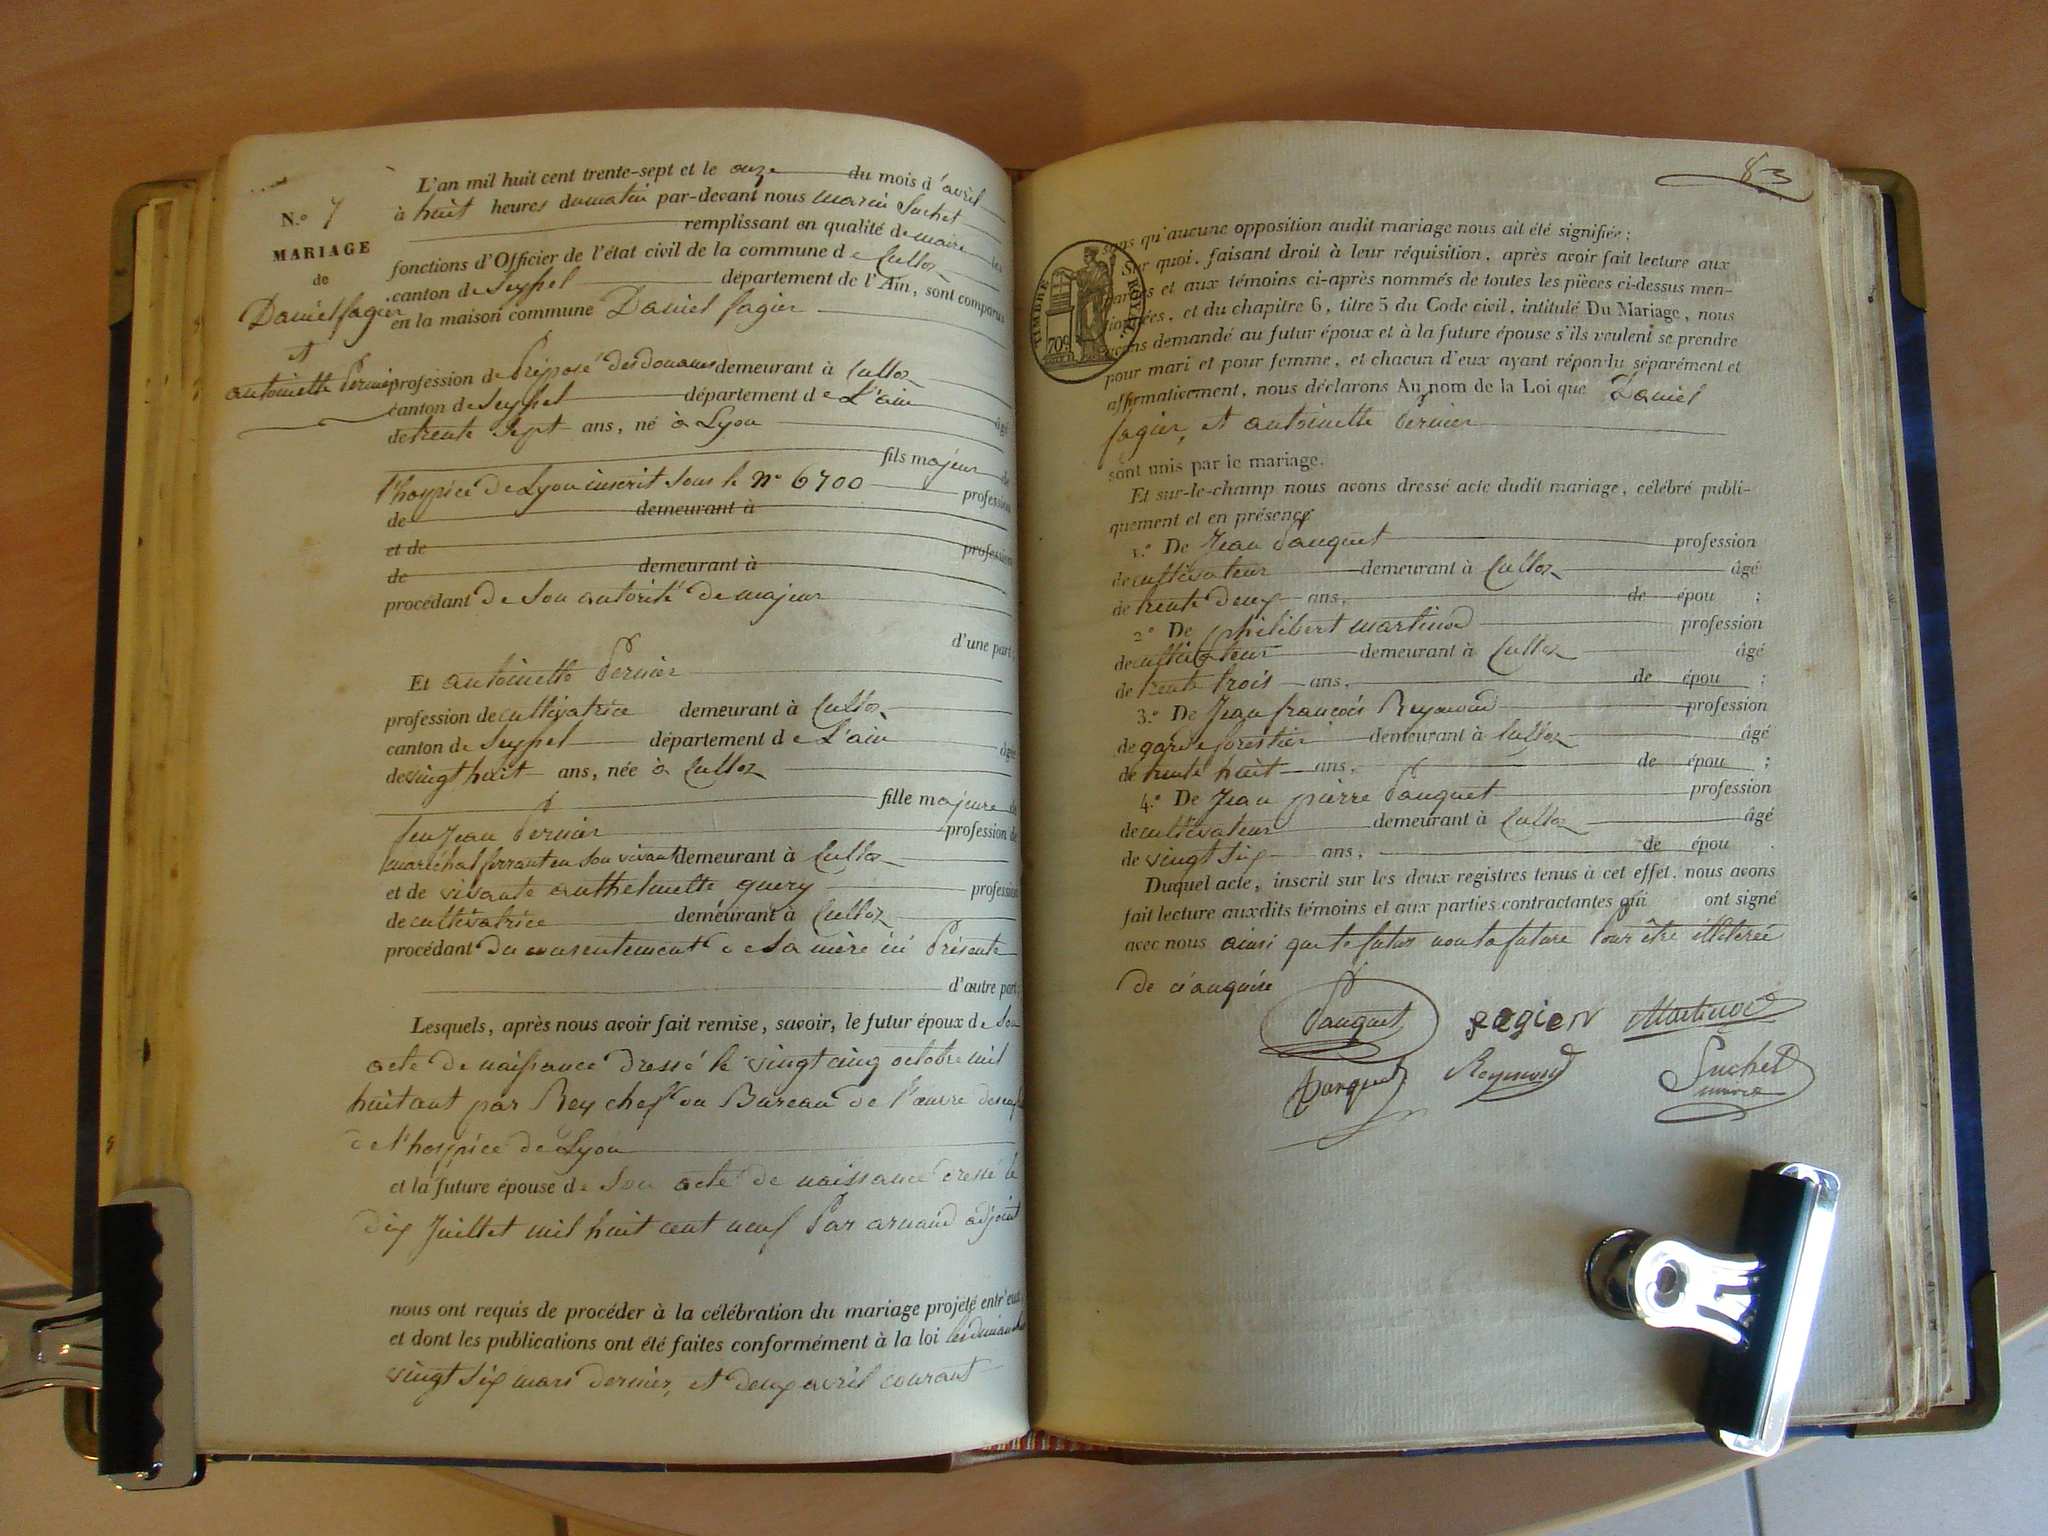 L'an mil huit cent trente-sept et le onze du mois d'avril
à huit heures du matin par-devant nous marin Suchet
remplissant en qualité de maire les
fonctions d'Officier de l'état civil de la commune de Culloz
canton de Seyssel département de l'Ain, sont comparus
en la maison commune Daniel fagier
N.º 7
MARIAGE
de
Daniel fagier
et
antoinette Pernier
profession de Préposé des douanes demeurant à Culloz
canton de Seyssel département de L'ain âgé
de trente Sept ans, né à Lyon
fils majeur de
l'hospice de Lyon inscrit sous le nº 6700 profession
de demeurant à
et de profession
de demeurant à
procédant de Son autorité de majeur
d'une part,
Et antoinette Pernier
profession de cultivatrice demeurant à Culloz
canton de Seyssel département de L'ain âgée
de vingt huit ans, née à Culloz
fille majeure de
feu Jean Pernier profession de
maréchal ferrant en Son vivant demeurant à Culloz
et de vivante anthelmette guery profession
de cultivatrice demeurant à Culloz
procédant du consentement de Sa mère ici Présente
d'autre part,
Lesquels, après nous avoir fait remise, savoir, le futur époux de Son
acte de naissance dressé le vingt cinq octobre mil
huit cent par Rey chef du Bureau de l'œuvre des
de l'hospice de Lyon
et la future épouse de Son acte de naissance dressé le
dix Juillet mil huit cent neuf Par arnaud adjoint
nous ont requis de procéder à la célébration du mariage projeté entr'eux
et dont les publications ont été faites conformément à la loi les dimanches
vingt Six mars dernier, et deux avril courant
83
TIMBRE ROYAL
70c
sans qu'aucune opposition audit mariage nous ait été signifiée;
Sur quoi, faisant droit à leur réquisition, après avoir fait lecture aux
parties et aux témoins ci-après nommés de toutes les pièces ci-dessus men-
tionnées, et du chapitre 6, titre 5 du Code civil, intitulé Du Mariage, nous
avons demandé au futur époux et à la future épouse s'ils veulent se prendre
pour mari et pour femme, et chacun d'eux ayant répondu séparément et
affirmativement, nous déclarons Au nom de la Loi que Daniel
fagier, et antoinette Pernier
sont unis par le mariage.
Et sur-le-champ nous avons dressé acte dudit mariage, célébré publi-
quement et en présence
1.º De Jean Pauquet profession
de cultivateur demeurant à Culloz âgé
de trente deux ans, de épou ;
2.º De philibert martinod profession
de cultivateur demeurant à Culloz âgé
de trente trois ans, de épou ;
3.º De Jean françois Reymond profession
de garde forestier demeurant à Culloz âgé
de trente huit ans, de épou ;
4.º De Jean pierre Pauquet profession
de cultivateur demeurant à Culloz âgé
de vingt Six ans, de épou .
Duquel acte, inscrit sur les deux registres tenus à cet effet, nous avons
fait lecture auxdits témoins et aux parties contractantes qui ont signé
avec nous ainsi que le futur non la future Pour être illiterée
de ce enquise
Pauquet fagier Martinod
Pauquet Reymond Suchet
maire